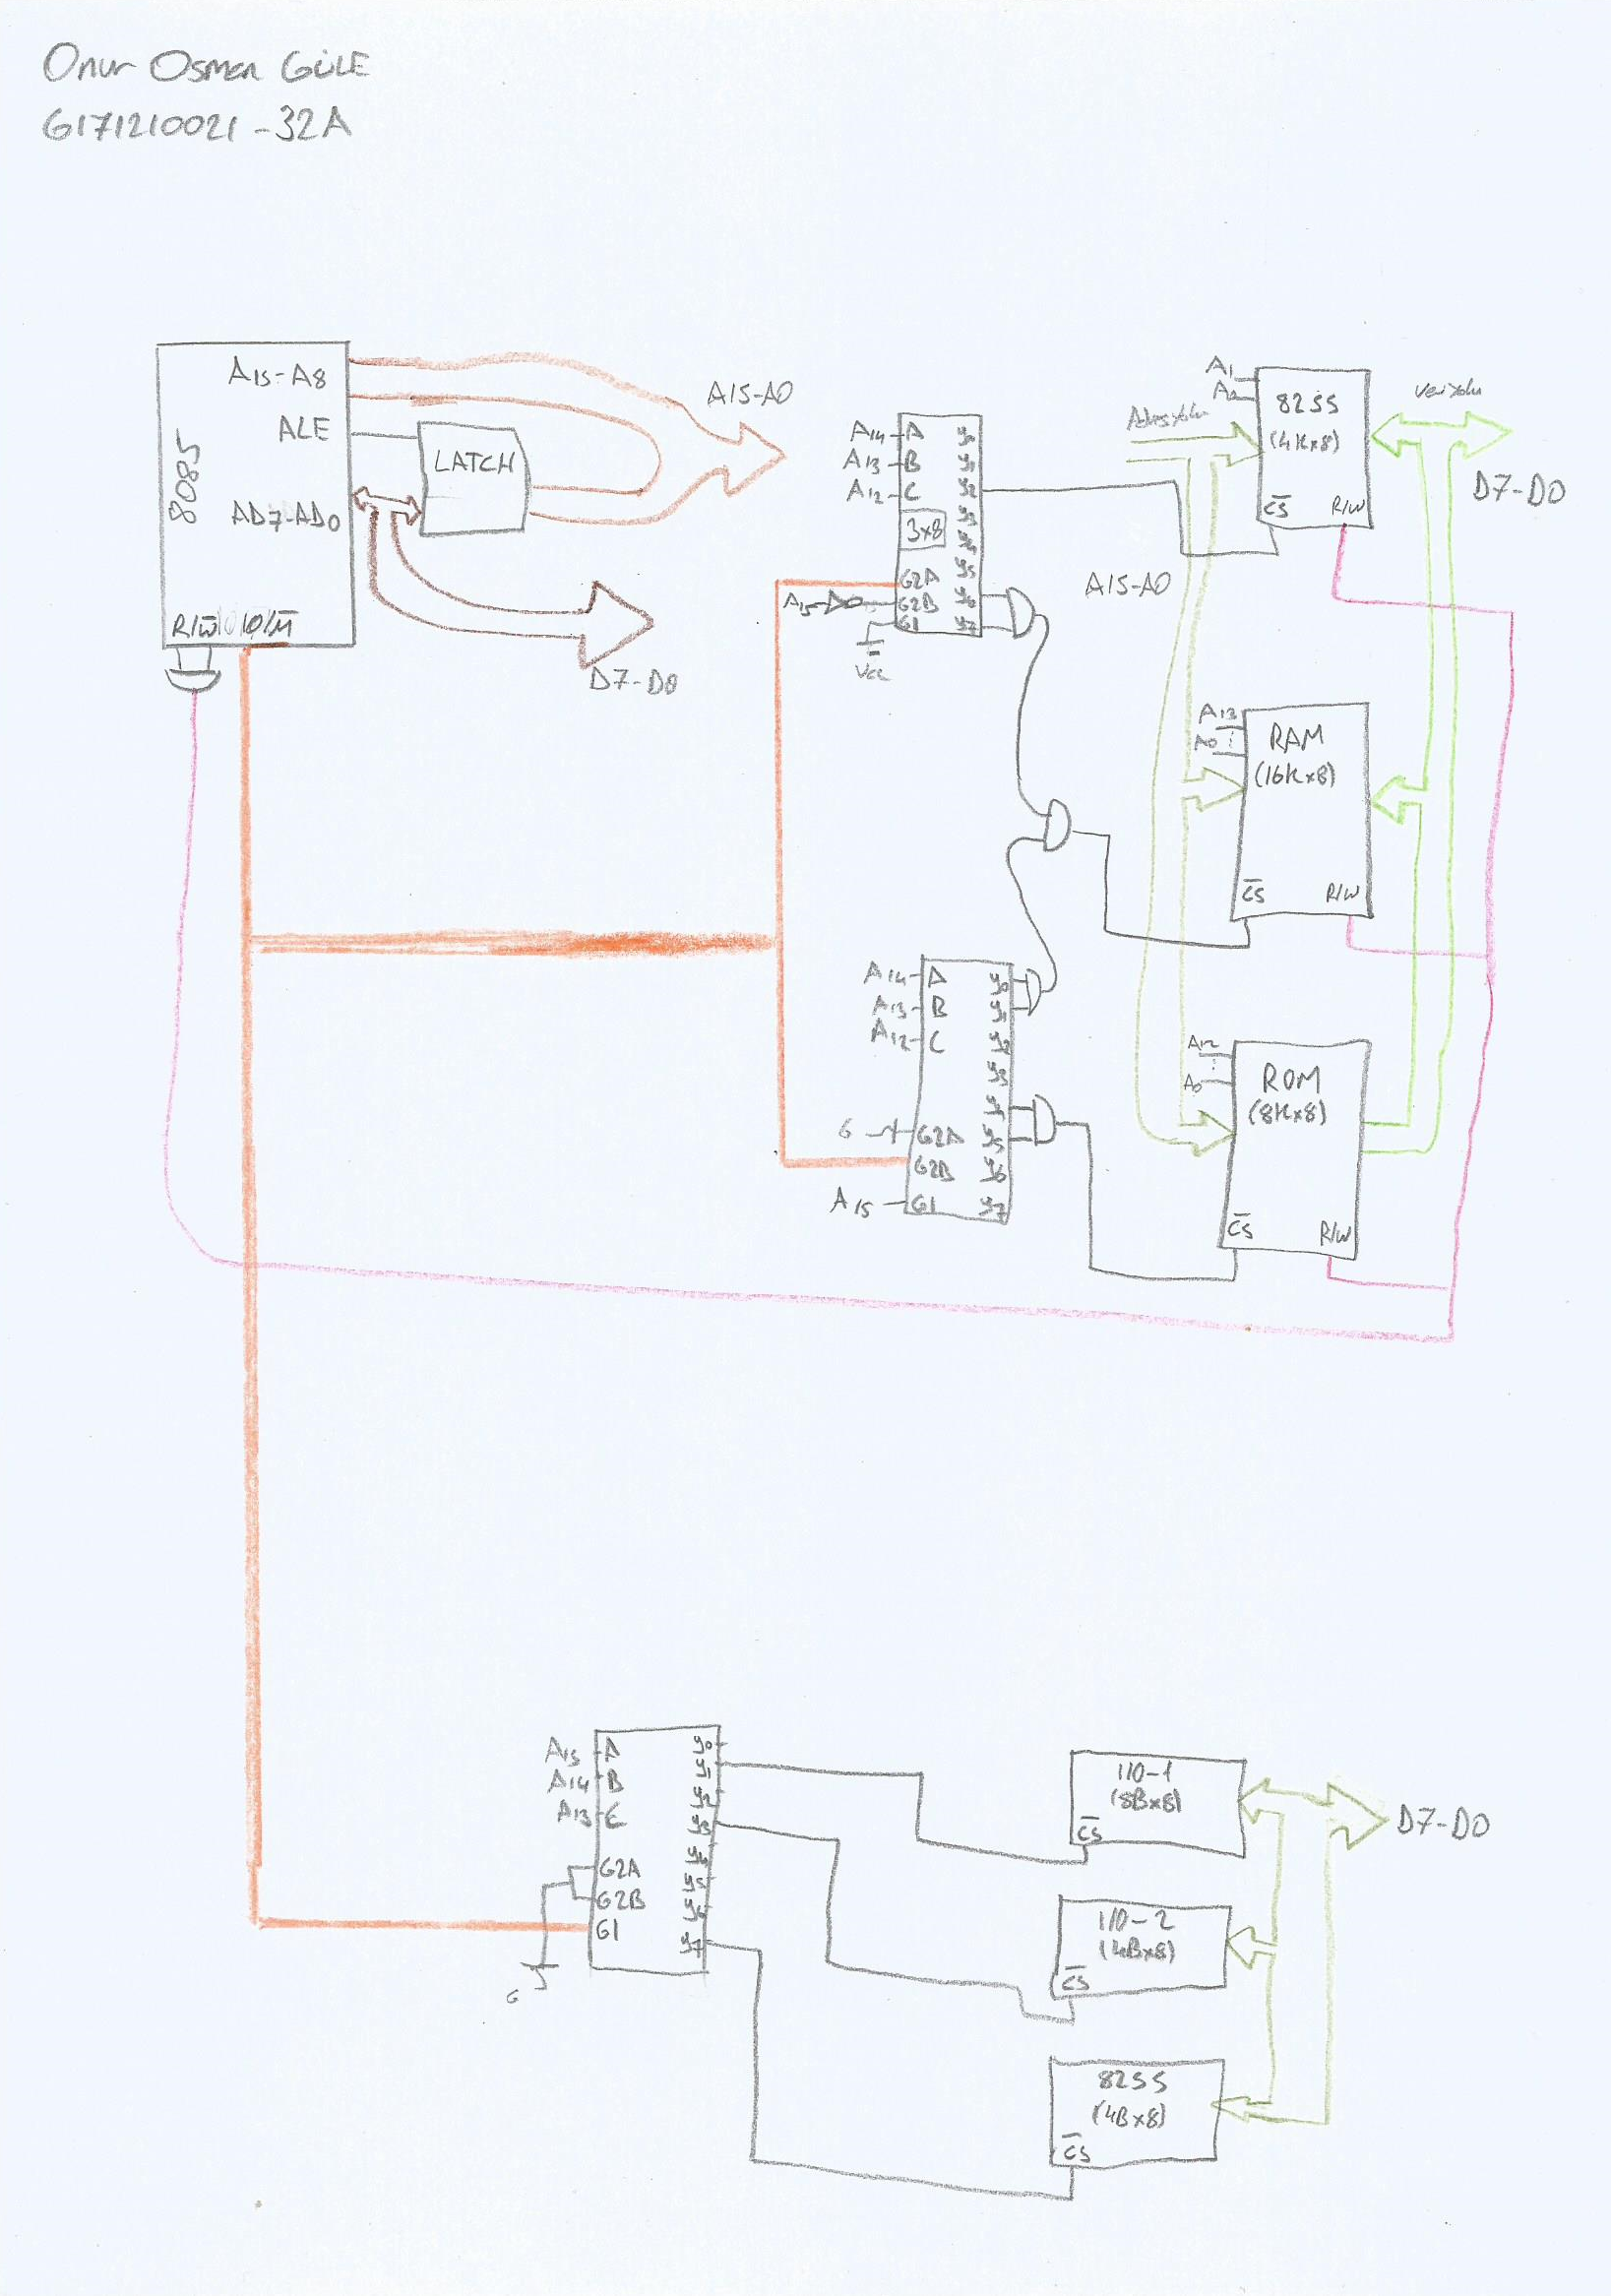 Onur Osman GÜLE
G171210021-32A
8085
A15-A8
ALE
AD7-AD0
R/W̅ IO/M̅
LATCH
A15-A0
D7-D0
A14 A
A13 B
A12 C
3x8
G2A
A15 G2B
G1
Vcc
y0
y1
y2
y3
y4
y5
y6
y7
Adres yolu
A1
A0
8255
(4Kx8)
C̅S̅
R/W
Veri yolu
D7-D0
A15-A0
A13
A0
RAM
(16Kx8)
C̅S̅
R/W
A14 A
A13 B
A12 C
G G2A
G2B
A15 G1
y0
y1
y2
y3
y4
y5
y6
y7
A12
A0
ROM
(8Kx8)
C̅S̅
R/W
A15 A
A14 B
A13 C
G2A
G2B
G1
G
y0
y1
y2
y3
y4
y5
y6
y7
I/O-1
(8Bx8)
C̅S̅
D7-D0
I/O-2
(4Bx8)
C̅S̅
8255
(4Bx8)
C̅S̅